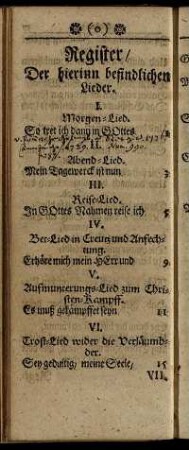 (o)
Register/
Der hierinn befindlichen
Lieder.
I.
Morgen-Lied.
So tret ich dann in GOttes
II.
Abend-Lied.
Mein Tagewerck ist nun 3
III.
Reise-Lied.
In GOttes Nahmen reise ich 5
IV.
Bet-Lied in Creutz und Anfech-
tung.
Erhöre mich mein HErr und 9
V.
Aufmunterungs-Lied zum Chri-
sten-Kampff.
Es muß gekämpffet seyn. 11
VI.
Trost-Lied wider die Verläumb-
der.
Sey gedultig, meine Seele, 15
VII.